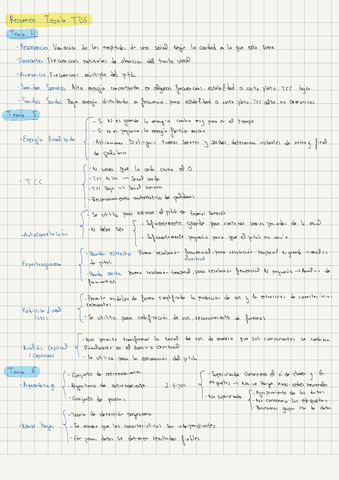 Resumen Teoría TDS
Tema 4
- Resonancia: Variación de las amplitudes de una señal según la cantidad a la que esta tiene
- Formantes: Frecuencias naturales de vibración del tracto vocal
- Armónicos: Frecuencias múltiplo del pitch
- Sonidos Sonoros: Alta energía concentrada en algunas frecuencias, estabilidad a corto plazo, TCC baja
- Sonidos Sordos: Baja energía distribuida en frecuencia, poca estabilidad a corto plazo, TCC alta, no armónicos
Tema 5
- Energía Localizada
- Si N es grande la energía cambia muy poco en el tiempo
- Si N es pequeño la energía fluctúa mucho
- Aplicaciones: Distinguir tramos sonoros y sordos, determinar instantes de inicio y final de palabras
- TCC
- Nº veces que la onda cruza el 0
- TCC Alta → Señal sorda
- TCC Baja → Señal sonora
- Reconocimiento automático de palabras
- Autocorrelación
- Se utiliza para estimar el pitch en tramos sonoros
- N debe ser
- Suficientemente grande para contener varios periodos de la señal
- Suficientemente pequeño para que el pitch no varíe
- Espectrograma
- Banda estrecha: Buena resolución frecuencial, peor resolución temporal
- Banda ancha: Buena resolución temporal, peor resolución frecuencial. N pequeño → Análisis de formantes
- Predicción lineal
(LPC)
- Permite modelos de forma simplificada la producción de voz y la extracción de características relevantes
- Se utiliza para codificación de voz, reconocimiento de fonemas
- Análisis Cepstral
(Cepstrum)
- Nos permite transformar la señal de voz de manera que sus componentes se combinan linealmente en el dominio cepstral
- Se utiliza para la estimación del pitch
Tema 6
- Aprendizaje
- Conjunto de entrenamiento
- Algoritmo de entrenamiento
- Conjunto de pruebas
2 tipos
- Supervisado: Conocemos el nº de clases y las etiquetas → Naive Bayes, KNN, redes neuronales
- No supervisado
- Agrupamiento de los datos
- No conocemos las etiquetas
- Buscamos grupos en los datos
- Naive Bayes
- Teoría de decisión bayesiana
- Se asume que las características son independientes
- Con pocos datos se obtienen resultados fiables